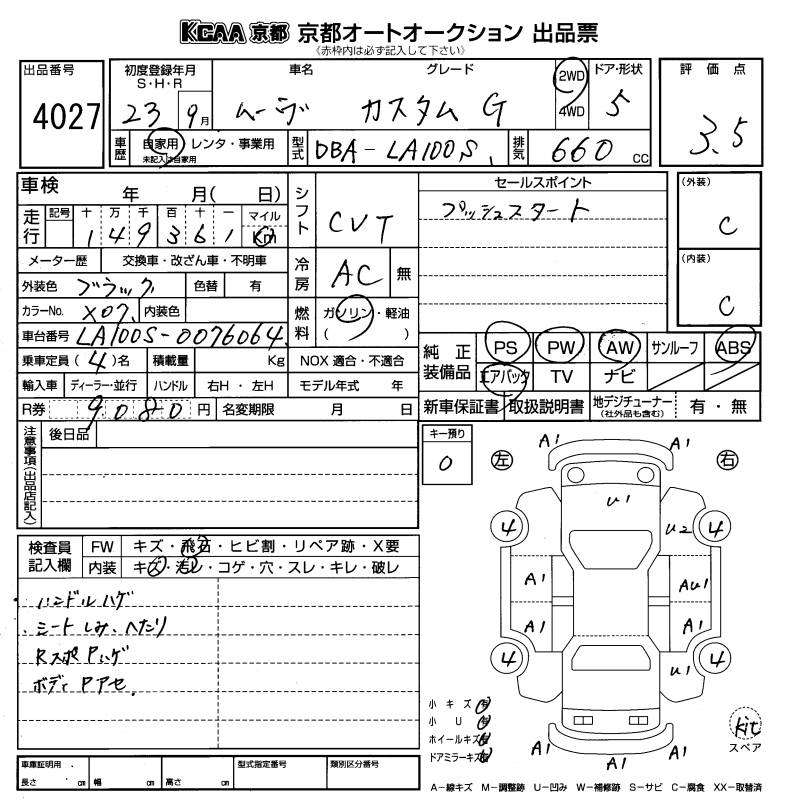 KCAA 京都 京都オートオークション 出品票
《赤枠内は必ず記入して下さい》
出品番号
4027
初度登録年月 車名 グレード 2WD 4WD ドア・形状 評価点
S・H・R
23 9月 ムーヴ カスタム G 5 3.5
車歴 自家用 レンタ・事業用 型式 DBA-LA100S 排気 660 cc
未記入は自家用
車検 年 月( 日) シフト CVT セールスポイント (外装)
プッシュスタート C
走行 記号 十 万 千 百 十 一 マイル Km
1 4 9 3 6 1
メーター歴 交換車・改ざん車・不明車 冷房 AC 無 (内装)
外装色 ブラック 色替 有 C
カラーNo. X07 内装色 燃料 ガソリン・軽油
車台番号 LA100S-0076064 ( )
乗車定員(4)名 積載量 Kg NOX 適合・不適合
純正装備品 PS PW AW サンルーフ ABS
エアバック TV ナビ
輸入車 ディーラー・並行 ハンドル 右H・左H モデル年式 年
R券 9080円 名変期限 月 日
新車保証書 取扱説明書 地デジチューナー 有・無
(社外品も含む)
注意事項(出品店記入) 後日品
キー預り
0
左 右
A1 A1
U1
4 U2 4
A1 AU1
A1 A1
4 U1 4
A1 A1
A1
検査員記入欄 FW キズ・飛石・ヒビ割・リペア跡・X要
内装 キズ・汚レ・コゲ・穴・スレ・キレ・破レ
ハンドルハゲ
シートしみ、へたり
RスポPハゲ
ボディPアセ
小キズ 有
小U 有
ホイールキズ 有
ドアミラーキズ 有
Kit
スペア
車庫証明用 型式指定番号 類別区分番号
長さ cm 幅 cm 高さ cm
A-線キズ M-調整跡 U-凹み W-補修跡 S-サビ C-腐食 XX-取替済